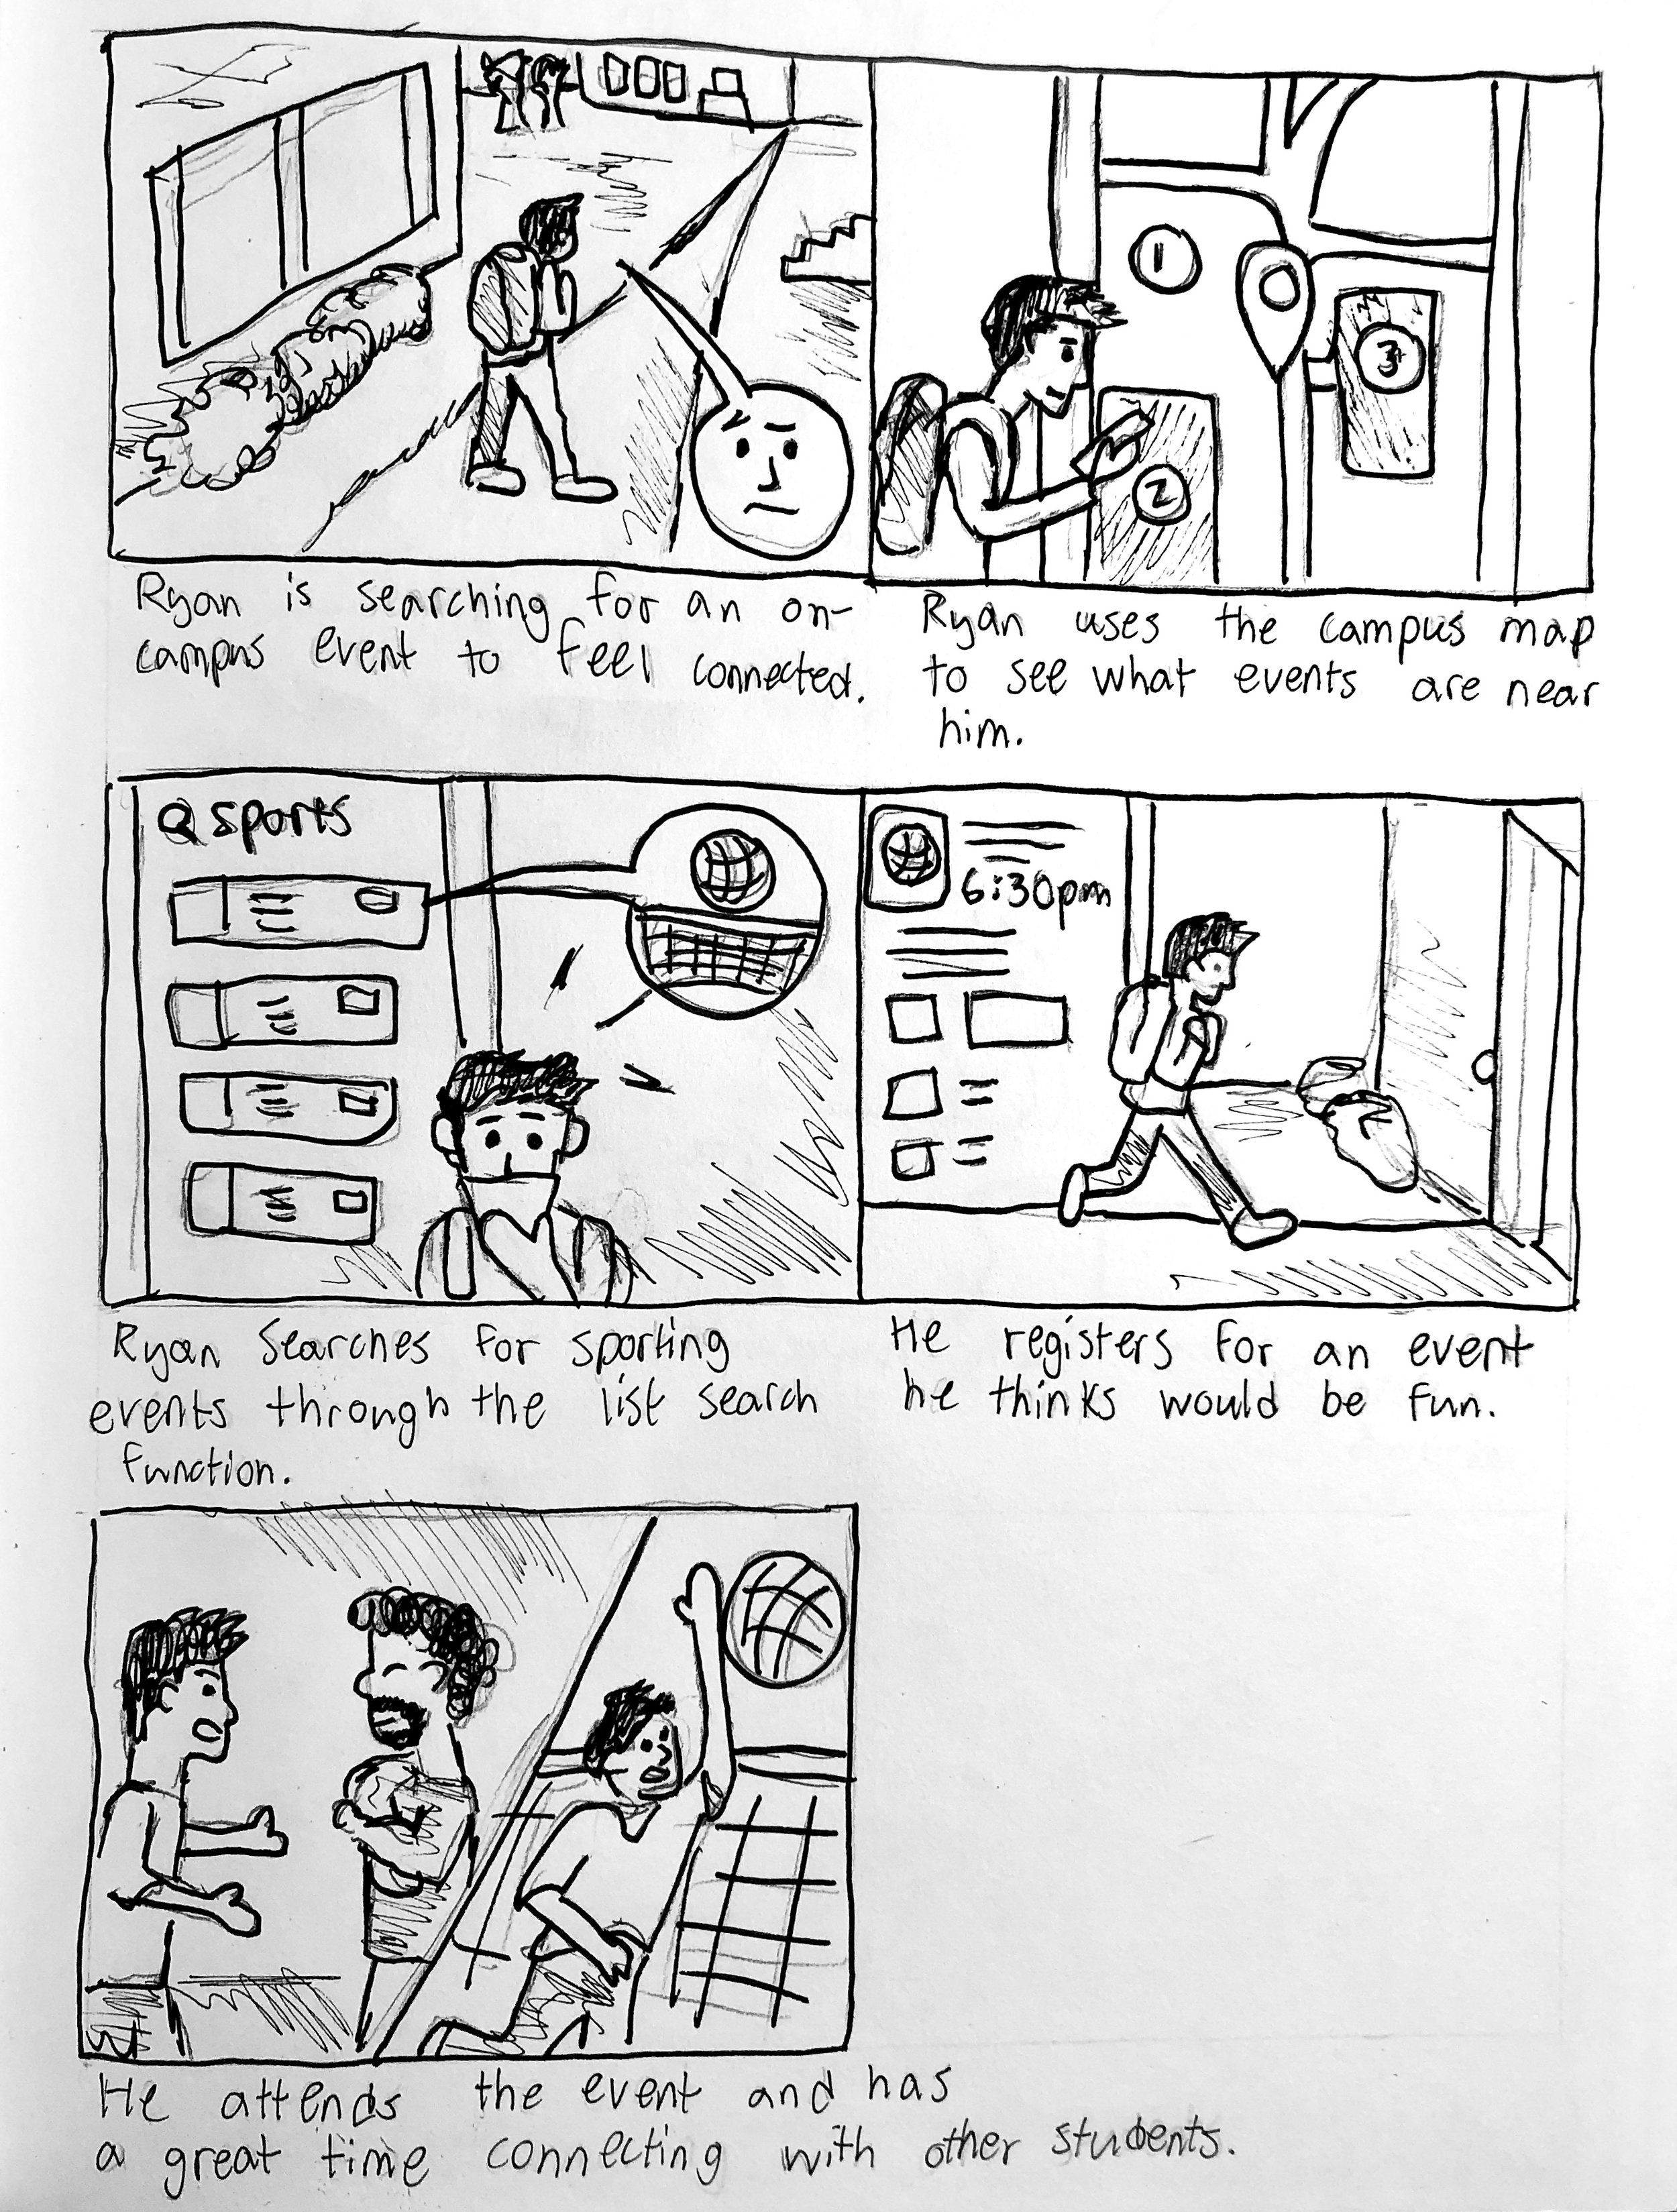 Ryan is searching for an on-
campus event to feel connected.
1
2
3
Ryan uses the campus map
to see what events are near
him.
sports
Ryan searches for sporting
events through the list search
function.
6:30pm
He registers for an event
he thinks would be fun.
He attends the event and has
a great time connecting with other students.